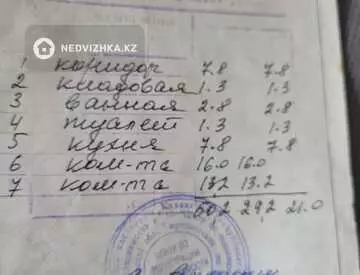 NEDVIZHKA.KZ
1 коридор 7.8 7.8
2 кладовая 1.3 1.3
3 ванная 2.8 2.8
4 туалет 1.3 1.3
5 кухня 7.8 7.8
6 ком-та 16.0 16.0
7 ком-та 13.2 13.2
50.2 29.2 21.0